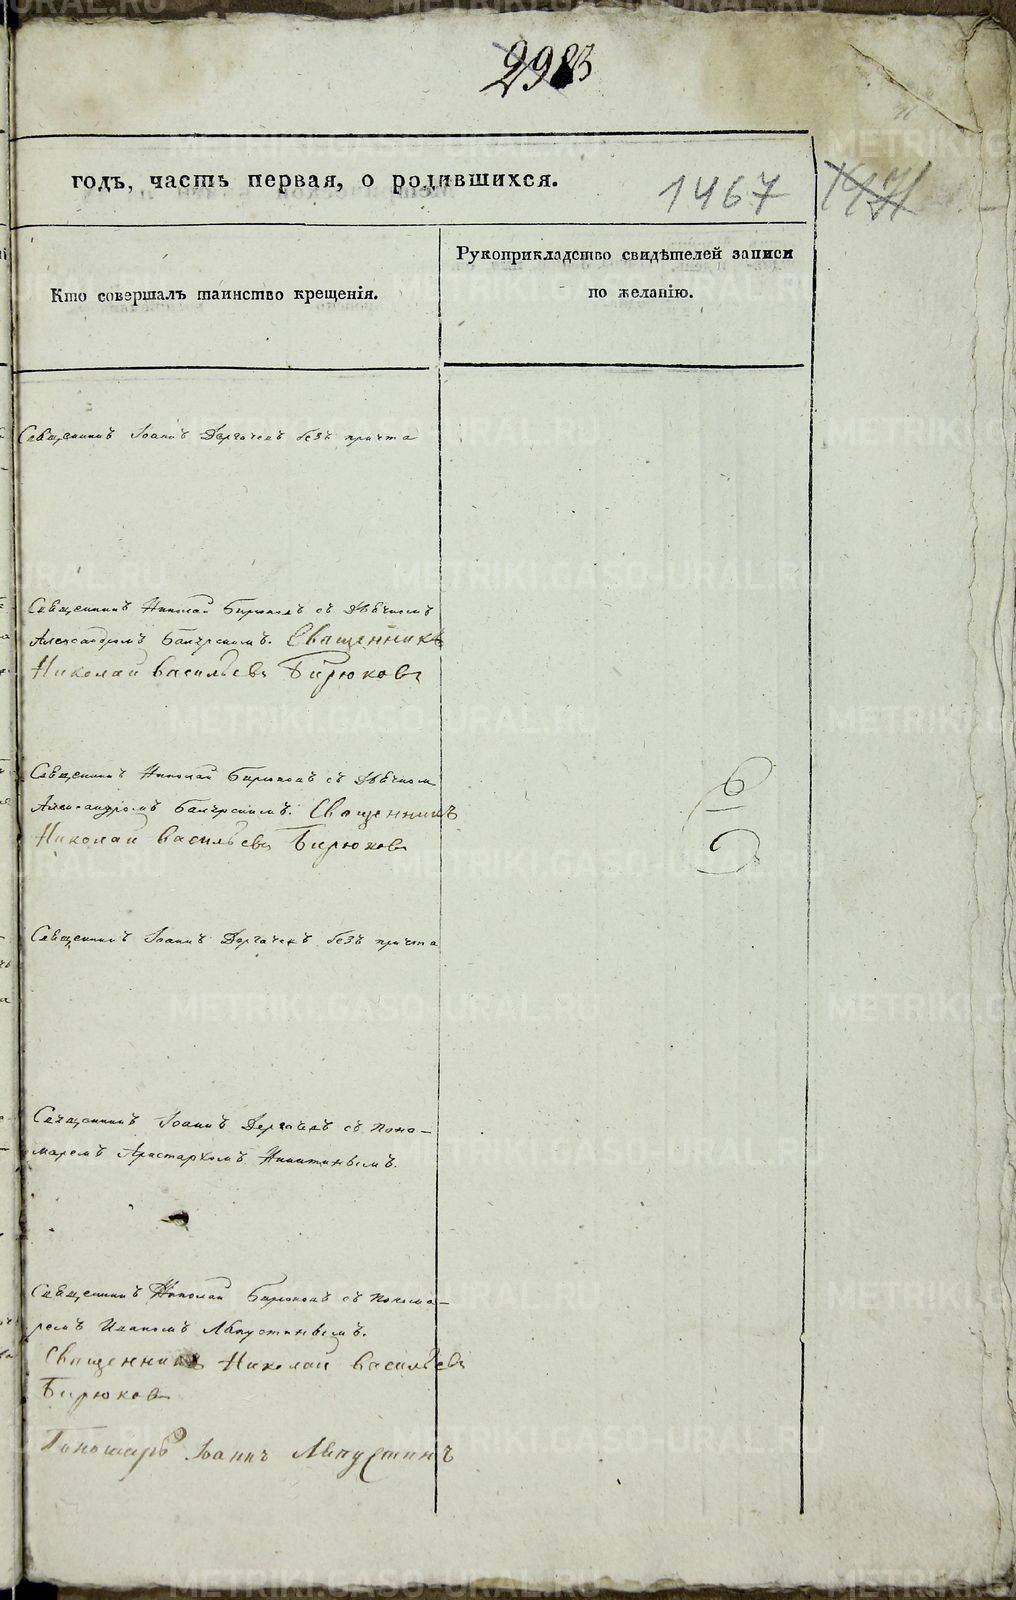 293
годъ, часть первая, о родившихся.
1467
Кто совершалъ таинство крещенія.
Рукоприкладство свидѣтелей записи
по желанію.
Священникъ Іоаннъ Дергачевъ безъ причта
Священникъ Николай Бирюковъ съ Дьячкомъ
Александромъ Священникъ
Николай Васильевъ Бирюковъ
Священникъ Николай Бирюковъ съ Дьячкомъ
Александромъ Священникъ
Николай Васильевъ Бирюковъ
Священникъ Іоаннъ Дергачевъ безъ причта
Священникъ Іоаннъ Дергачевъ съ Поно-
маремъ Аристархомъ Никитинымъ.
Священникъ Николай Бирюковъ съ Понома-
ремъ Иваномъ Августинымъ.
Священникъ Николай Васильевъ
Бирюковъ
Пономарь Іоаннъ Августинъ
METRIKI.GASO-URAL.RU